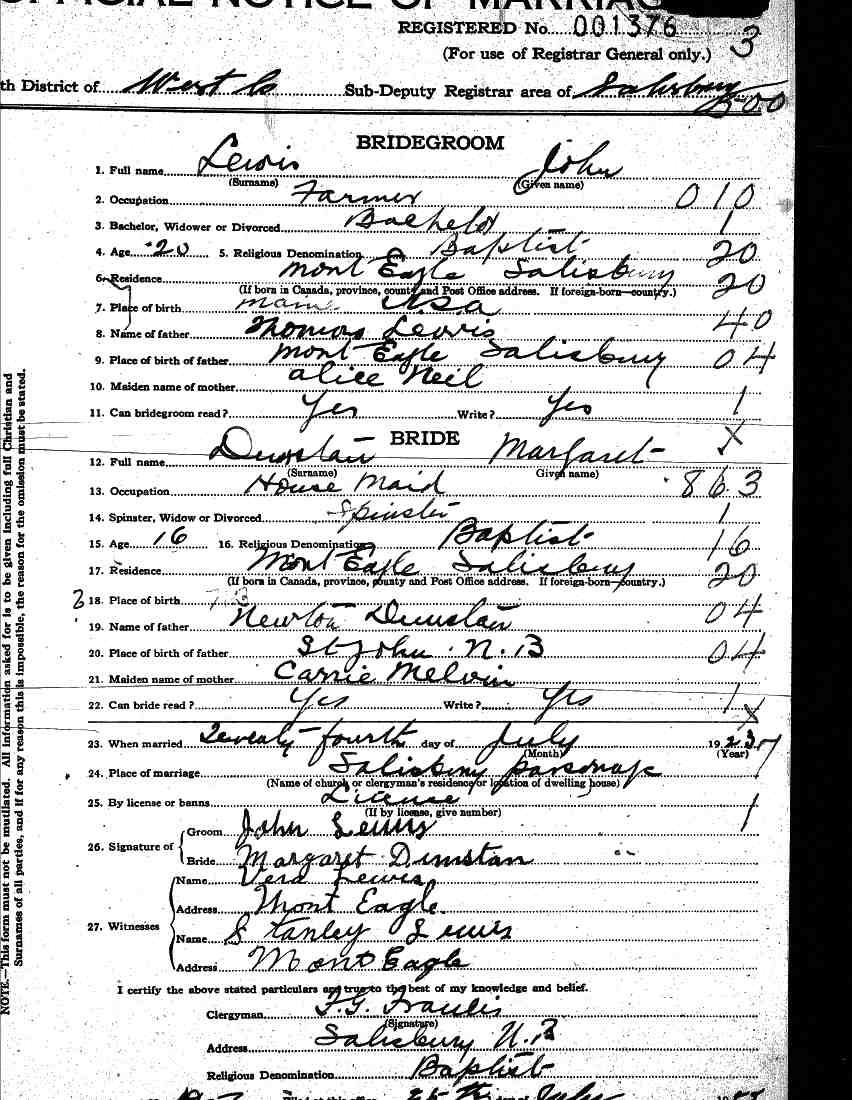 OFFICIAL NOTICE OF MARRIAGE
REGISTERED No. 001376
(For use of Registrar General only.) 3
th District of West Co Sub-Deputy Registrar area of Salisbury
500
BRIDEGROOM
1. Full name Lewis John
(Surname) (Given name)
2. Occupation Farmer 010
3. Bachelor, Widower or Divorced Bachelor 1
4. Age 20 5. Religious Denomination Baptist 20
6. Residence Mont Eagle Salisbury 20
(If born in Canada, province, county and Post Office address. If foreign-born—country.)
7. Place of birth Maine USA 40
8. Name of father Thomas Lewis
9. Place of birth of father Mont Eagle Salisbury 04
10. Maiden name of mother Alice Neil
11. Can bridegroom read? Yes Write? Yes 1
BRIDE X
12. Full name Dunstan Margaret
(Surname) Given name)
13. Occupation House Maid 863
14. Spinster, Widow or Divorced Spinster 1
15. Age 16 16. Religious Denomination Baptist 16
17. Residence Mont Eagle Salisbury 20
(If born in Canada, province, county and Post Office address. If foreign-born—country.)
18. Place of birth 04
19. Name of father Newton Dunstan
20. Place of birth of father St John N.B 04
21. Maiden name of mother Carrie Melvin
22. Can bride read? Yes Write? Yes 1
X
23. When married Twenty fourth day of July 1923
(Month) (Year)
24. Place of marriage Salisbury parsonage 1
(Name of church or clergyman's residence or location of dwelling house)
25. By license or banns License 1
(If by license, give number)
26. Signature of
Groom John Lewis
Bride Margaret Dunstan
27. Witnesses
Name Vera Lewis
Address Mont Eagle
Name Stanley Lewis
Address Mont Eagle
I certify the above stated particulars are true to the best of my knowledge and belief.
Clergyman F.G. Francis
(Signature)
Address Salisbury N.B
Religious Denomination Baptist
25 th July
NOTE.—This form must not be mutilated. All information asked for is to be given including full Christian and
Surnames of all parties, and if for any reason this is impossible, the reason for the omission must be stated.